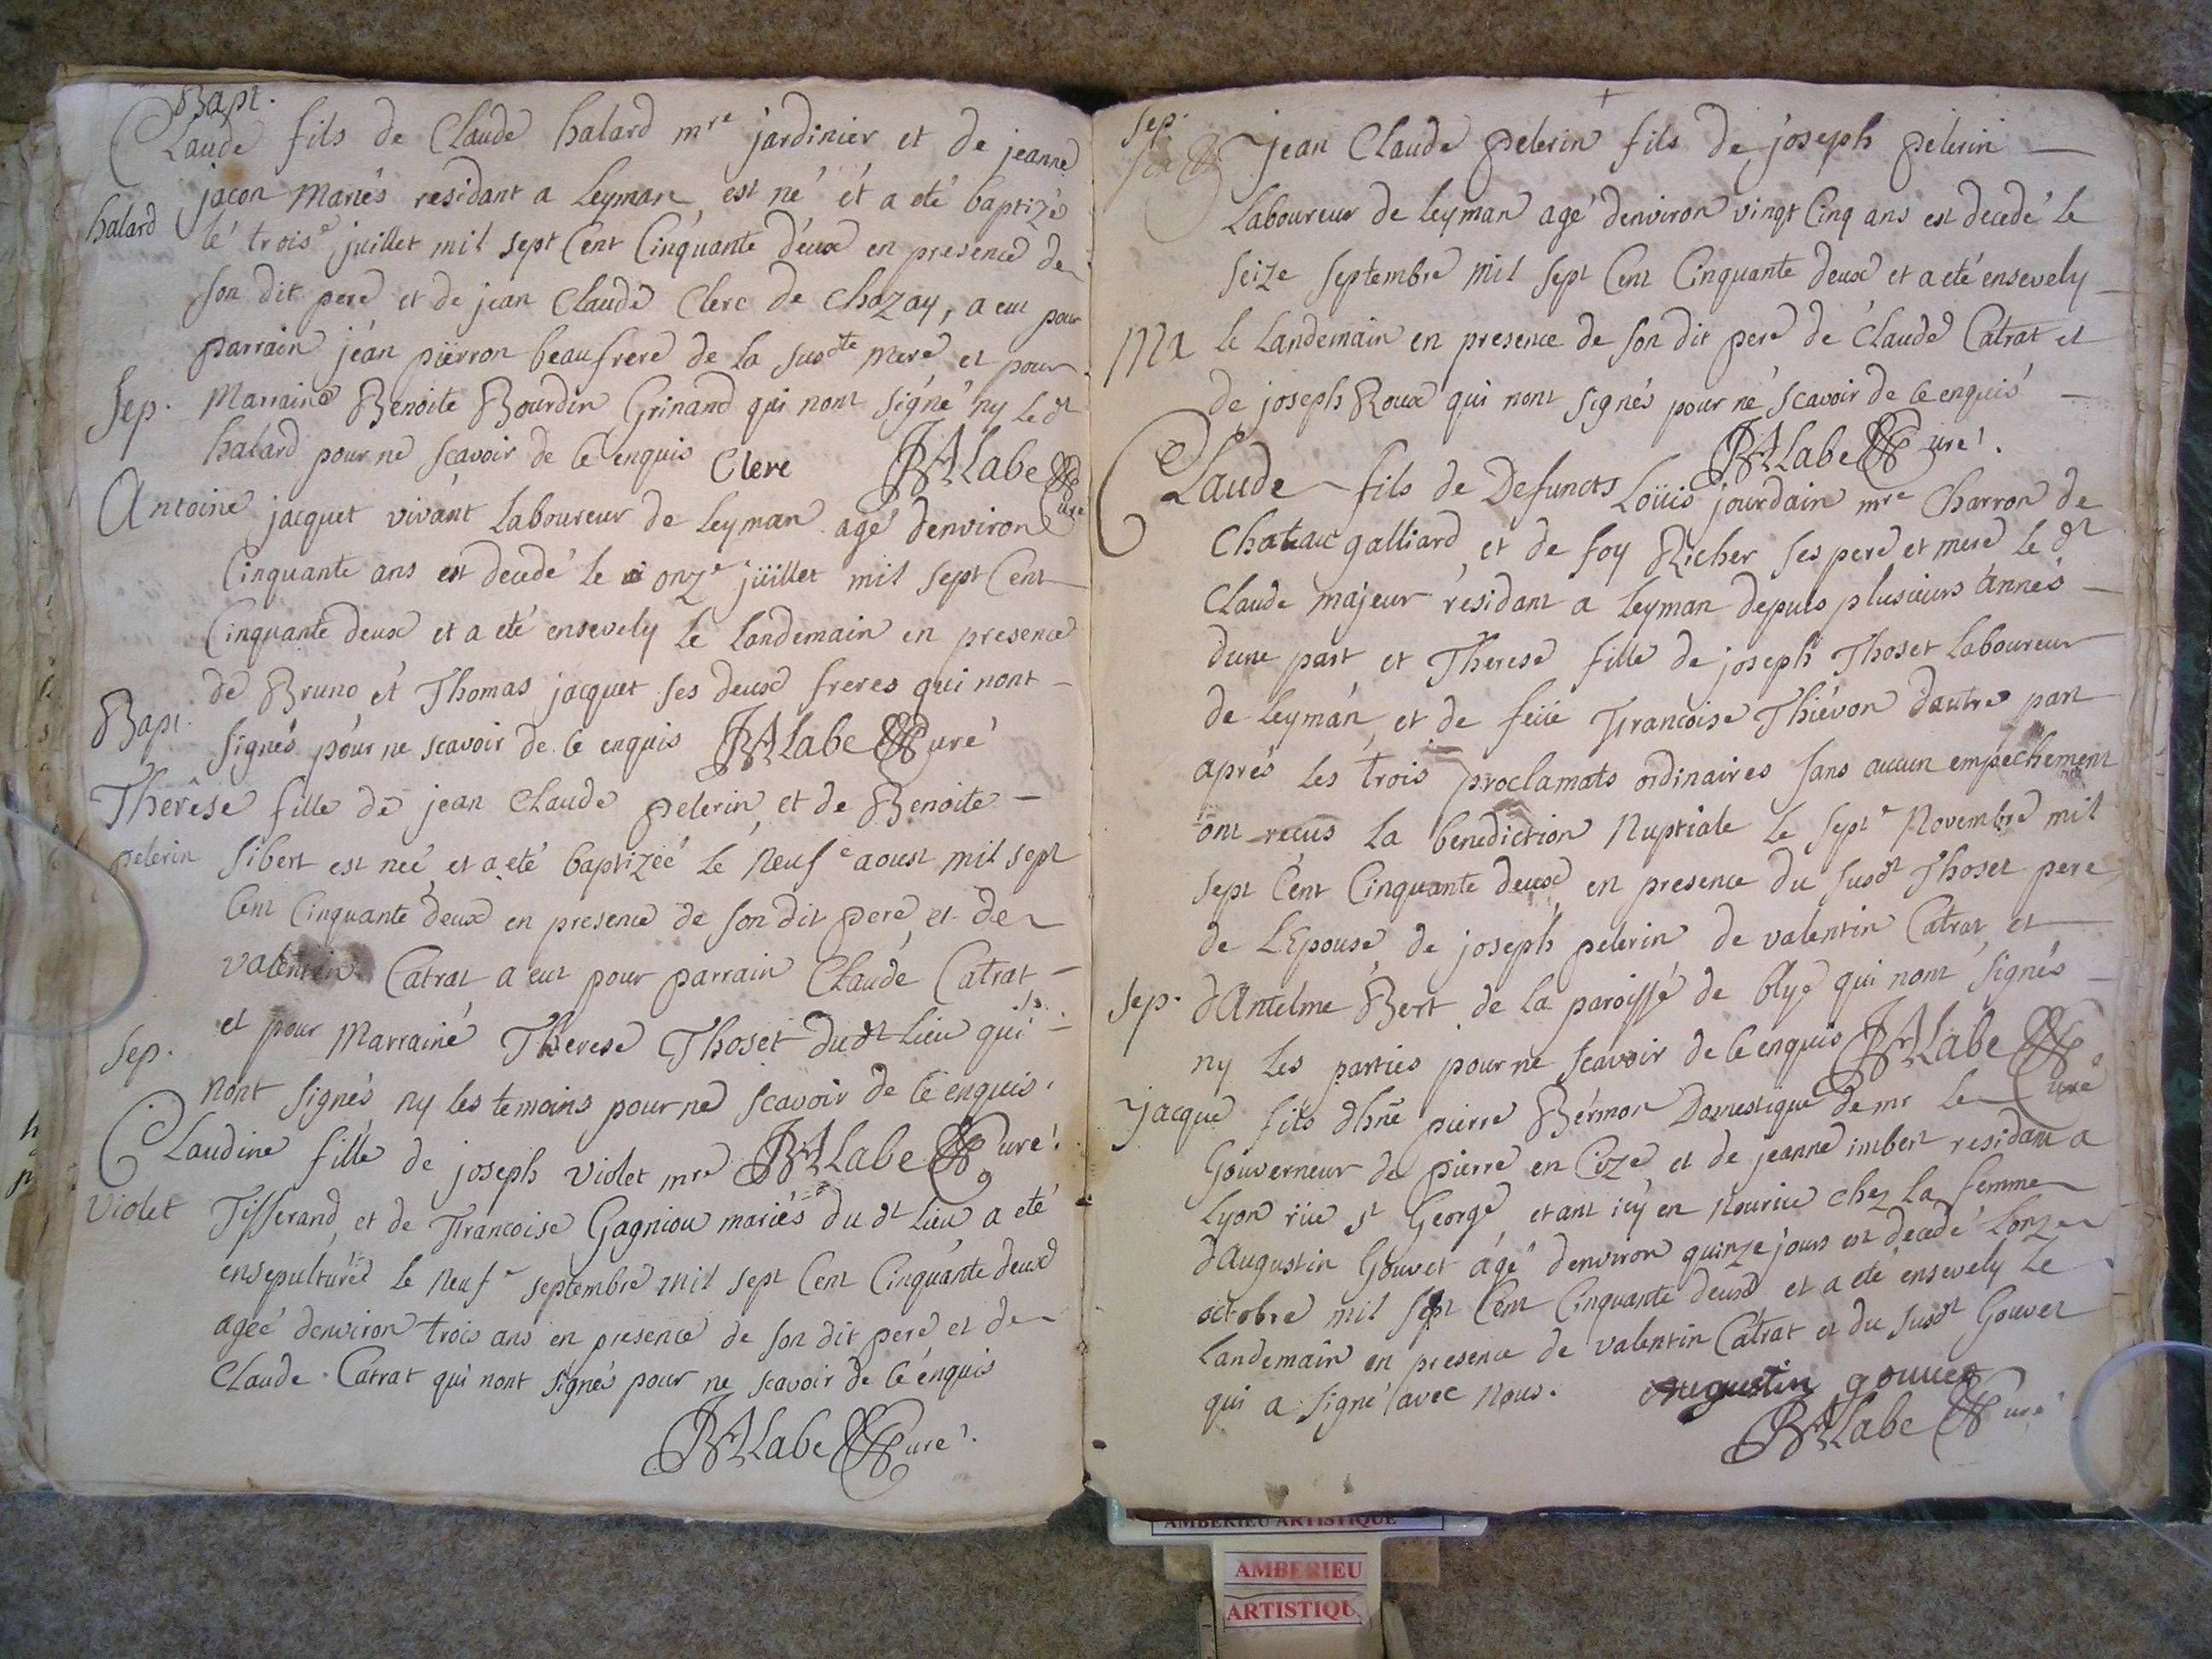 Bapt.
Claude fils de Claude halard mre jardinier et de jeanne
jacon Mariés residant a Leyman est né et a eté baptizé
halard
le trois.e juillet mil sept Cent Cinquante deux en presence de
son dit pere et de jean Claude Clerc de Chazay, a eut pour
parrain jean pierron beaufrere de la susdte mere et pour
Sep.
Marraine Benoite Bourdin Grinand qui nont signé ny le dt
halard pour ne scavoir de ce enquis Clere JBA Labe Curé
Antoine jacquet vivant Laboureur de Leyman agé denviron
Cinquante ans est decedé le onz.e juillet mil sept Cent
Cinquante deux et a eté ensevely Le Landemain en presence
de Bruno et Thomas jacquet ses deux freres qui nont
Bapt.
signés pour ne scavoir de ce enquis JBA Labe Curé
Therêse fille de jean Claude pelerin et de Benoite
pelerin
sibert est neé et a eté baptizeé le Neuf.e aoust mil sept
Cent Cinquante deux en presence de son dit pere et de
valentin Catrat a eut pour parrain Claude Catrat
et pour Marraine Therese Thoset dudt Lieu qui
Sep.
nont signés ny les temoins pour ne scavoir de ce enquis.
Claudine fille de joseph violet mre JBA Labe Curé.
Violet
Tisserand et de Francoise Gagniou mariés du dt Lieu a eté
ensepultureé le Neuf.e septembre mil sept Cent Cinquante deux
ageé denviron trois ans en presence de son dit pere et de
Claude Catrat qui nont signés pour ne scavoir de ce enquis
JBA Labe Curé.
Sep.
jean Claude pelerin fils de joseph pelerin
Laboureur de leyman agé denviron vingt Cinq ans est decedé le
seize septembre mil sept Cent Cinquante deux et a eté ensevely
Ma
le Landemain en presence de son dit pere de Claude Catrat et
de joseph Roux qui nont signés pour ne scavoir de ce enquis
JBA Labe Curé.
Claude fils de Defuncts Loüis jourdain mre Charron de
Chateau galliard et de foy Richer ses pere et mere le dt
Claude majeur residant a leyman depuis plusieurs annés
dune part et Therese fille de joseph Thoset Laboureur
de leyman et de feüe Francoise Thiévon dautre part
aprés les trois proclamats ordinaires sans aucun empechement
ont recus la benediction Nuptiale le sept.e Novembre mil
sept Cent Cinquante deux en presence du susdt Thoset pere
de LEpouse, de joseph pelerin de valentin Catrat et
Sep.
dAntelme Bert de la paroisse de blye qui nont signés
ny les parties pour ne scavoir de ce enquis JBA Labe Curé
jacque fils dhñe pierre Bermon Domestique de mr Le
Gouverneur de pierre en Cize et de jeanne imbert residant a
Lyon rüe st George etant icy en Nourice chez La femme
dAugustin Gouvet agé denviron quinze jours est decedé Lonze
octobre mil sept Cent Cinquante deux et a eté ensevely Le
Landemain en presence de valentin Catrat et du susdt Gouvet
qui a signé avec Nous. Augustin gouvet
JBA Labe Curé
AMBERIEU ARTISTIQUE
AMBERIEU
ARTISTIQU